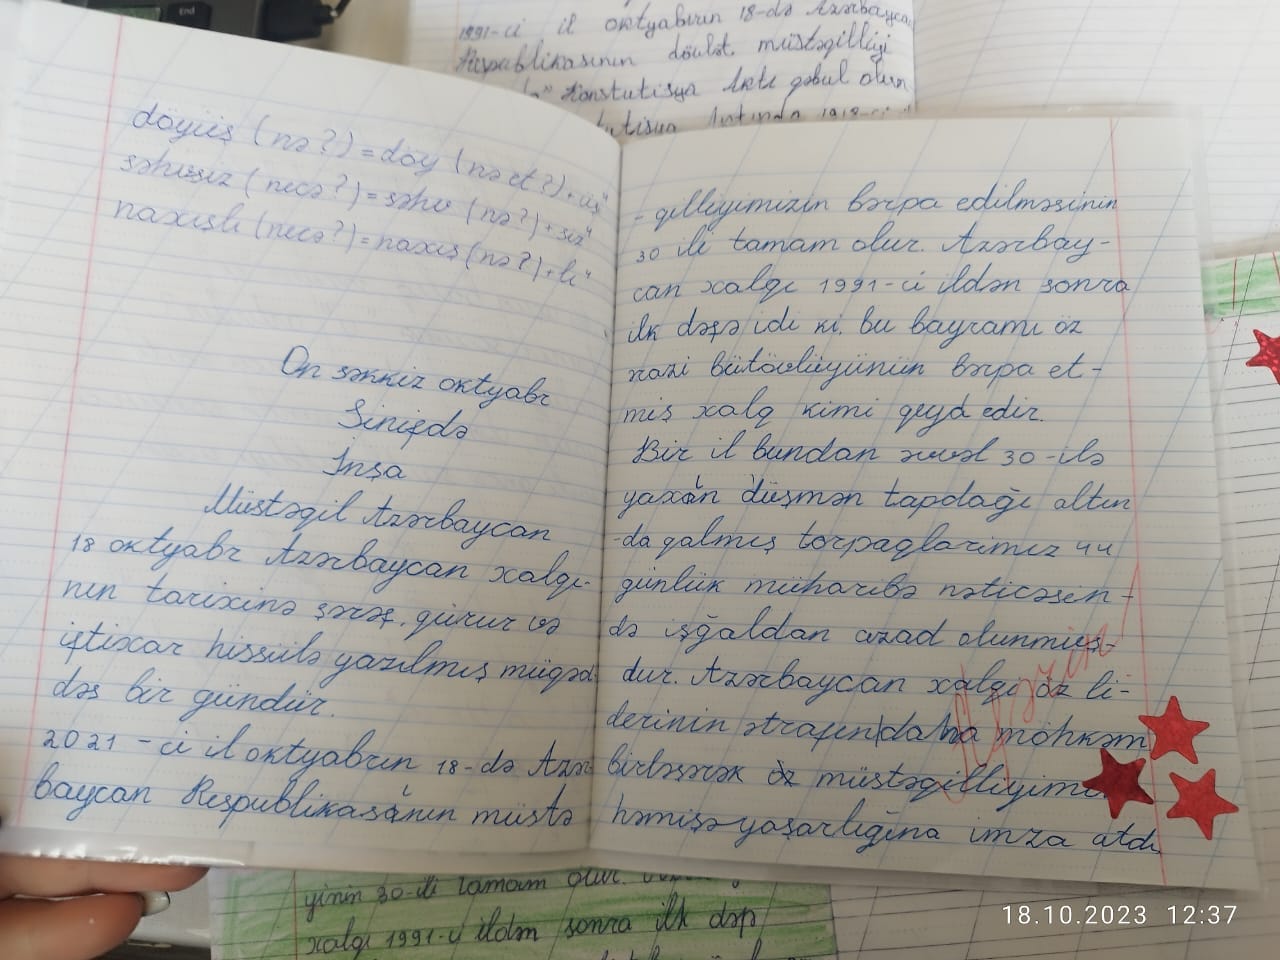 1991-ci il oktyabrın 18-də Azərbaycan
Respublikasının dövlət müstəqilliyi
" Konstutisya Aktı qəbul olun
döyüş (nə?) = döy (nə et?) + üş"
səhvsiz (necə?) = səhv (nə?) + siz"
naxışlı (necə?) = naxış (nə?) + lı"
On səkkiz oktyabr
Sinifdə
İnşa
Müstəqil Azərbaycan
18 oktyabr Azərbaycan xalqı-
nın tarixinə şərəf, qürur və
iftixar hissilə yazılmış müqəd-
dəs bir gündür.
2021-ci il oktyabrın 18-də Azər-
baycan Respublikasının müstə
-qilliyimizin bərpa edilməsinin
30 ili tamam olur. Azərbay-
can xalqı 1991-ci ildən sonra
ilk dəfə idi ki, bu bayramı öz
ərazi bütövlüyünün bərpa et-
miş xalq kimi qeyd edir.
Bir il bundan əvvəl 30-ilə
yaxın düşmən tapdağı altın
-da qalmış torpaqlarımız 44
günlük müharibə nəticəsin-
də işğaldan azad olunmuş-
dur. Azərbaycan xalqı öz li-
derinin ətrafında daha möhkəm
birləşərək öz müstəqilliyimi
həmişə yaşarlığına imza atdı
yinin 30-ili tamam olur.
xalqı 1991-ci ildən sonra ilk dəf
18.10.2023 12:37
End